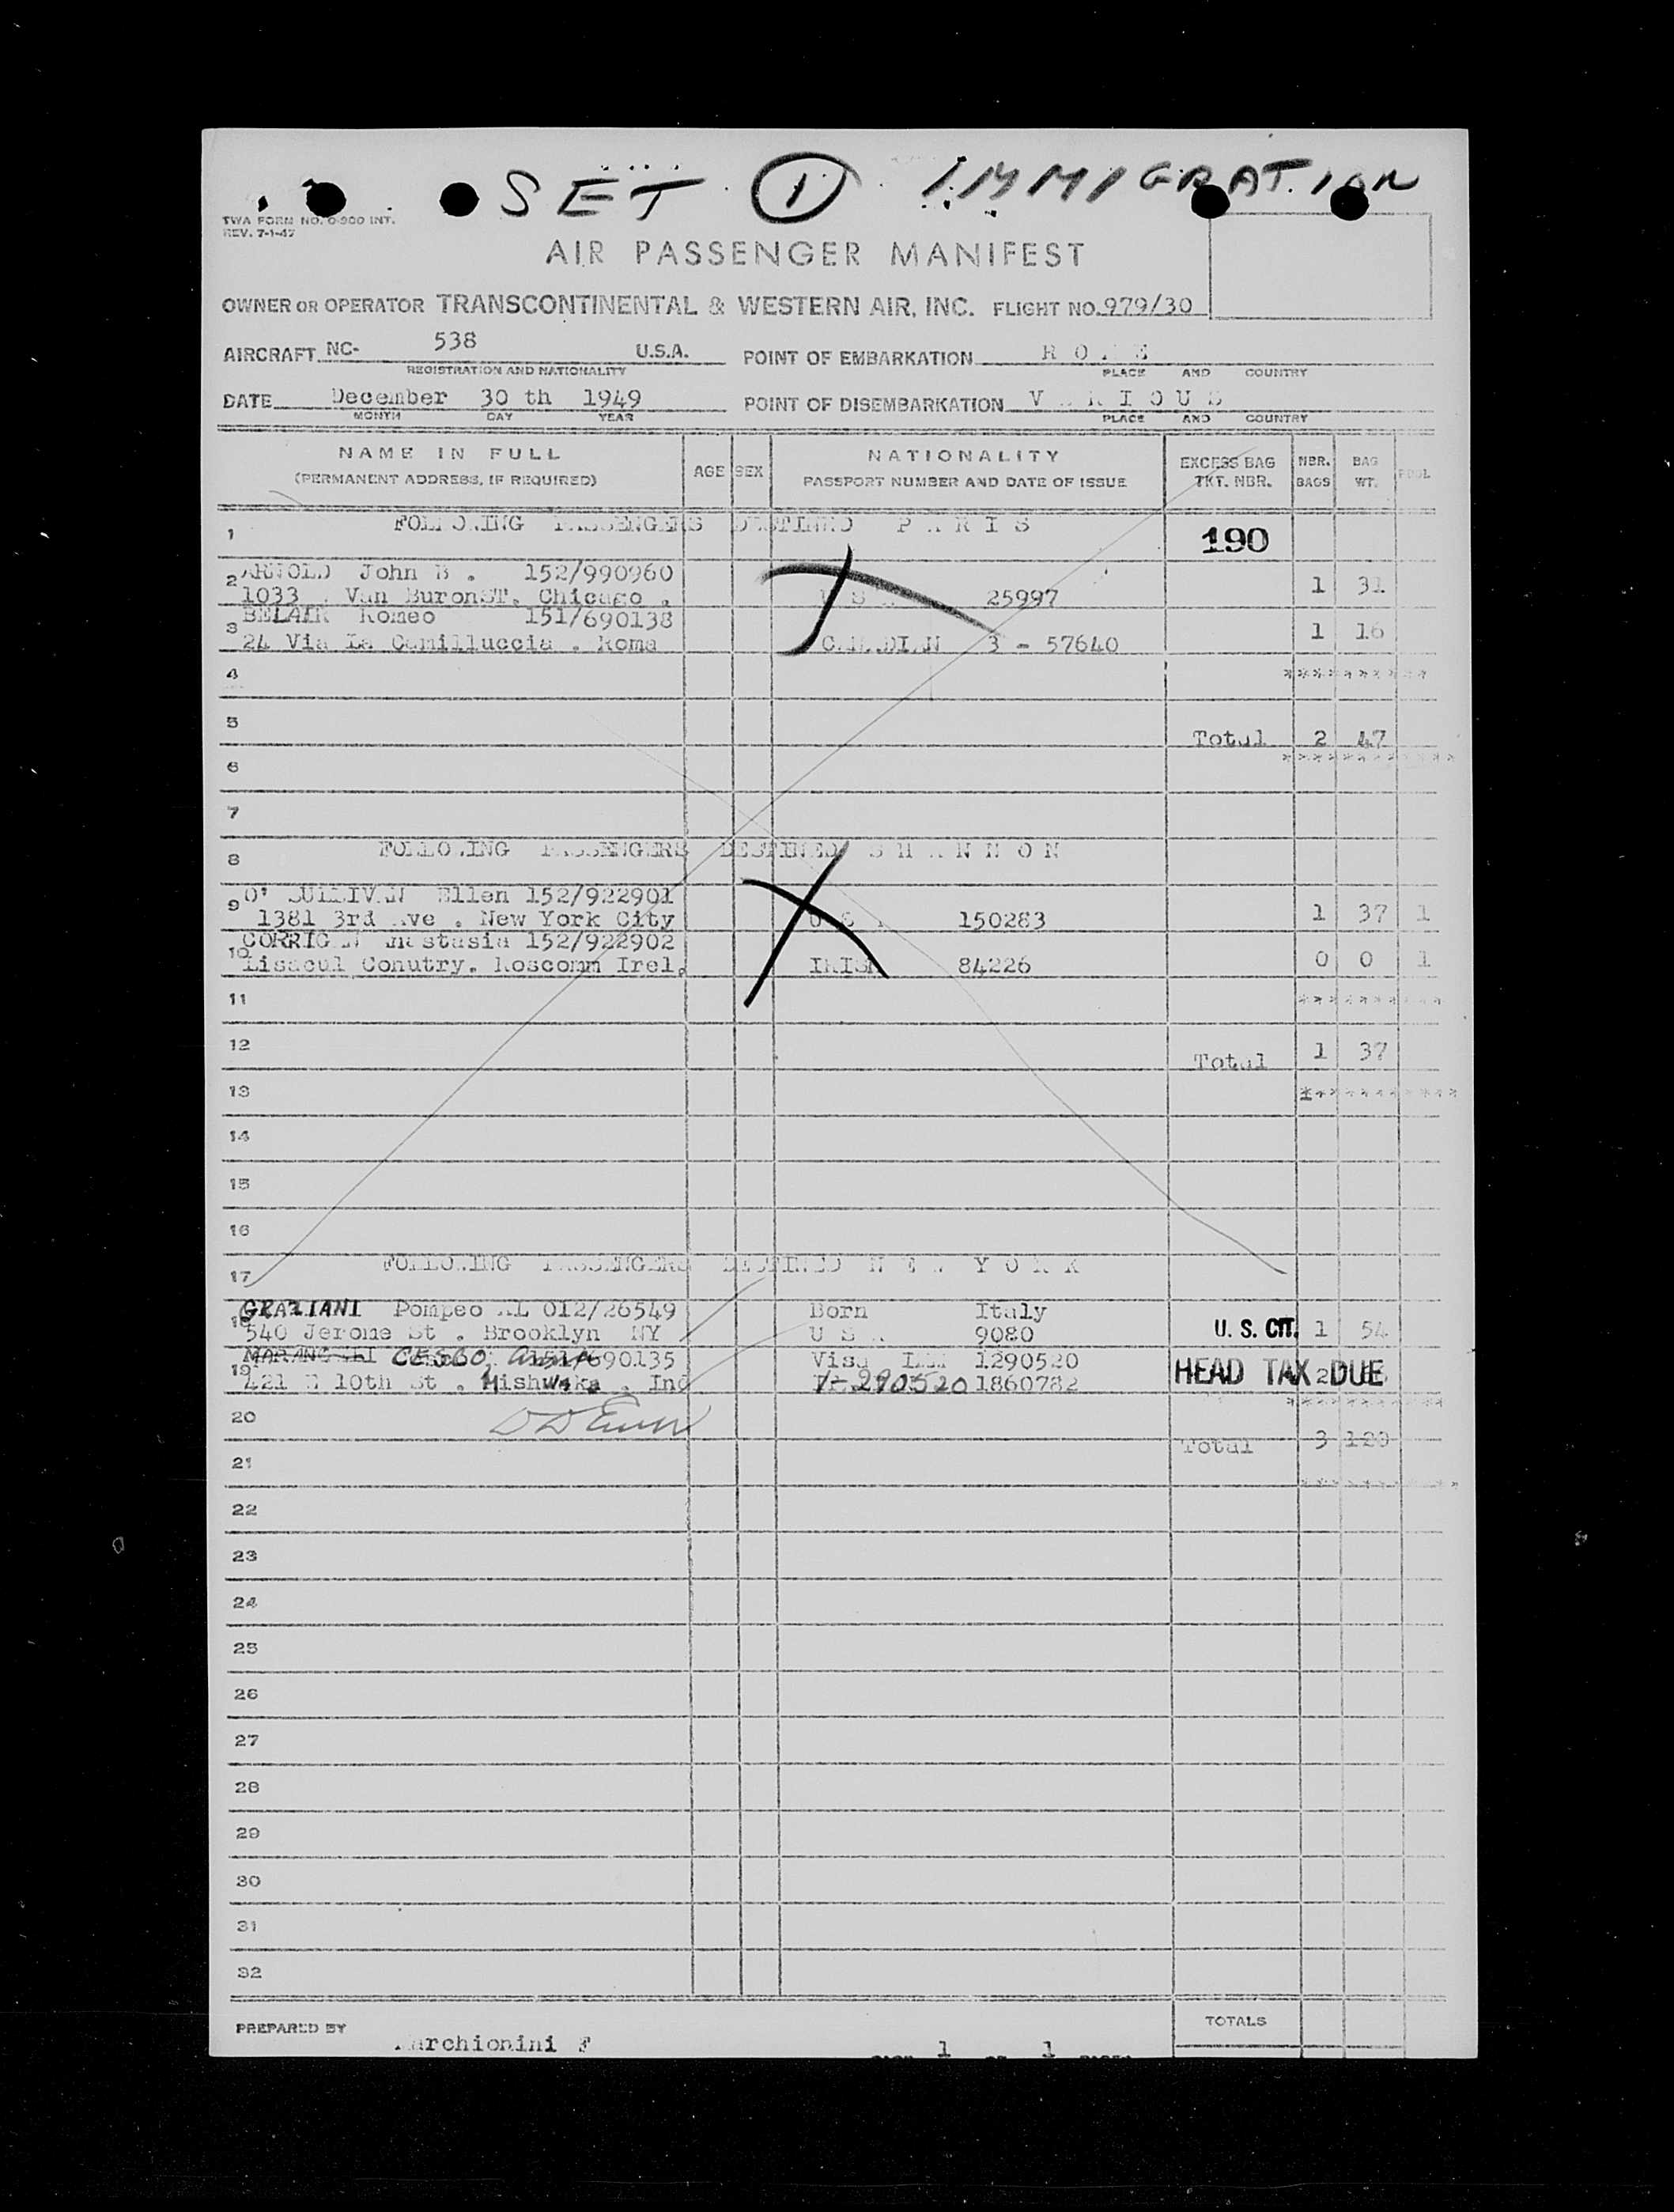 SET 1 IMMIGRATION
TWA FORM NO. 0-900 INT.
REV. 7-1-47
AIR PASSENGER MANIFEST
OWNER OR OPERATOR TRANSCONTINENTAL & WESTERN AIR, INC. FLIGHT NO. 979/30
AIRCRAFT NC- 538 U.S.A. POINT OF EMBARKATION R O M E
REGISTRATION AND NATIONALITY PLACE AND COUNTRY
DATE December 30 th 1949 POINT OF DISEMBARKATION V A R I O U S
MONTH DAY YEAR PLACE AND COUNTRY
NAME IN FULL AGE SEX NATIONALITY EXCESS BAG NBR. BAG POOL
(PERMANENT ADDRESS, IF REQUIRED) PASSPORT NUMBER AND DATE OF ISSUE TKT. NBR. BAGS WT.
1 FOLLOWING PASSENGERS DESTINED P A R I S 190
2 ARNOLD John B . 152/990960 1 31
1033 . Van BuronST. Chicago . U S A 25997
3 BELAIR Romeo 151/690138 1 16
24 Via La Camilluccia . Roma CANADIAN 3 - 57640
4 **********
5 Total 2 47
6 ************
7
8 FOLLOWING PASSENGERS DESTINED S H A N N O N
9 O' SULLIVAN Ellen 152/922901 1 37 1
1381 3rd Ave . New York City U S A 150283
10 CORRIGAN Anastasia 152/922902 0 0 1
Lisacul Conutry. Roscomm Irel. IRISH 84226
11 **********
12 Total 1 37
13 ***********
14
15
16
17 FOLLOWING PASSENGERS DESTINED N E W Y O R K
18 GRAZIANI Pompeo AL 012/26549 Born Italy
540 Jerome St . Brooklyn NY U S A 9080 U. S. CIT. 1 54
19 CESCO, Anna 690135 Visa 1290520
421 E 10th St . Mishwaka . Ind V-290520 1860782 HEAD TAX DUE 2
20 ***********
Total 3 120
21 ***********
22
23
24
25
26
27
28
29
30
31
32
PREPARED BY Marchionini F TOTALS
1 1